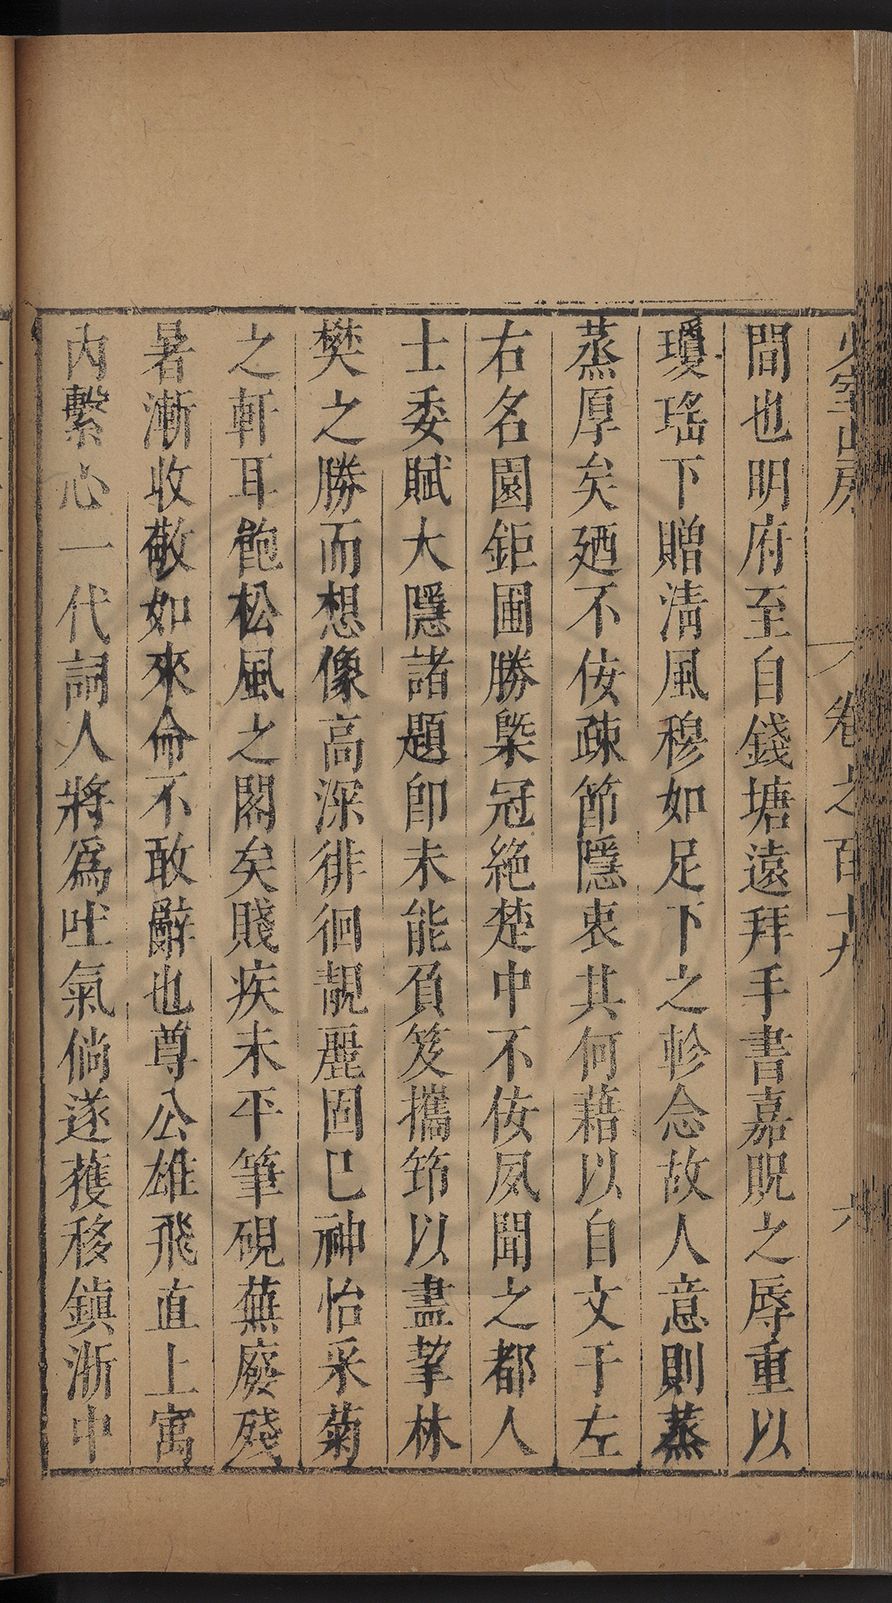 少室山房 卷之百十九 六
間也明府至自錢塘遠拜手書嘉貺之辱重以
瓊瑤下贈清風穆如足下之軫念故人意則蒸
蒸厚矣廼不佞疎節隱衷其何藉以自文于左
右名園鉅圃勝槩冠絶楚中不佞夙聞之都人
士委賦大隱諸題即未能負笈攜笻以盡挐林
樊之勝而想像高深徘徊靚麗固已神怡采菊
之軒耳飽松風之閣矣賤疾未平筆硯蕪廢殘
暑漸收敬如來命不敢辭也尊公雄飛直上寓
內繫心一代詞人將爲吐氣倘遂獲移鎭浙中